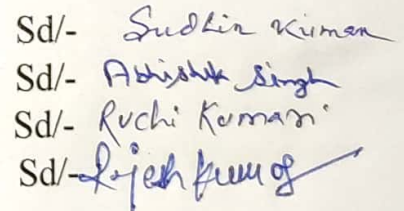 Sd/- Sudhir Kumar
Sd/- Abhishek Singh
Sd/- Ruchi Kumari
Sd/- Rajesh Kumar